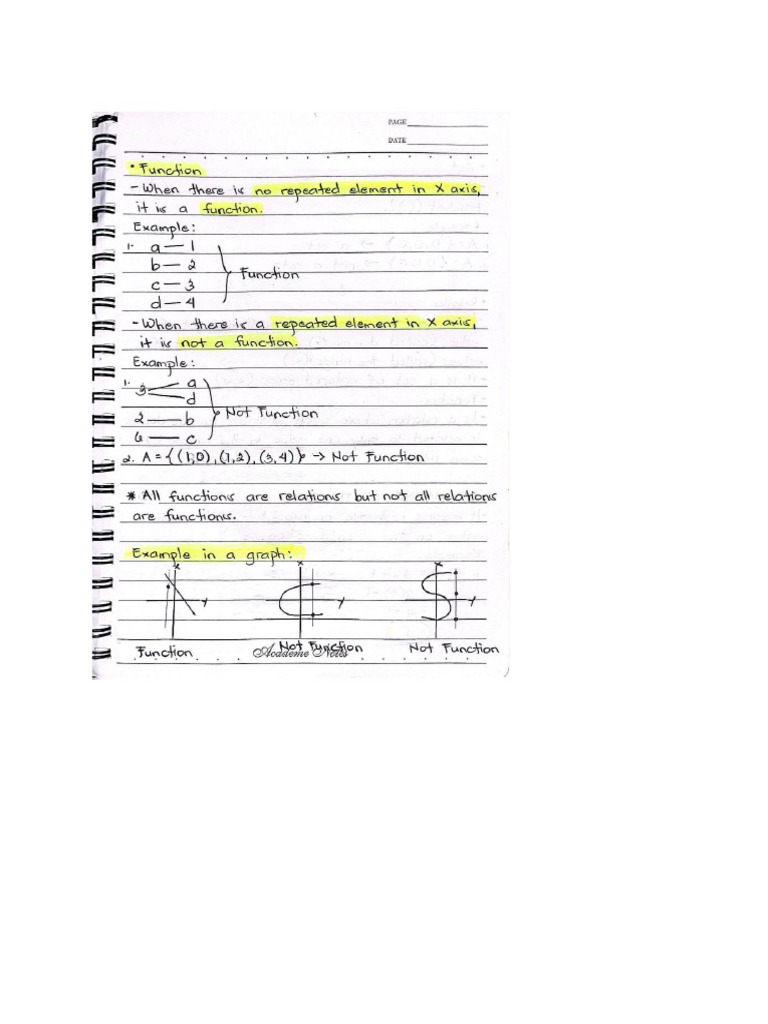 PAGE
DATE
• Function
- When there is no repeated element in X axis,
it is a function.
Example:
1. a — 1
b — 2
c — 3
d — 4
Function
- When there is a repeated element in X axis,
it is not a function.
Example:
1. 3 a
d
2 — b
6 — c
Not Function
2. A = {(1,0), (1,2), (3,4)} → Not Function
* All functions are relations but not all relations
are functions.
Example in a graph:
x x x
y y y
Function Not Function Not Function
Academe Notes